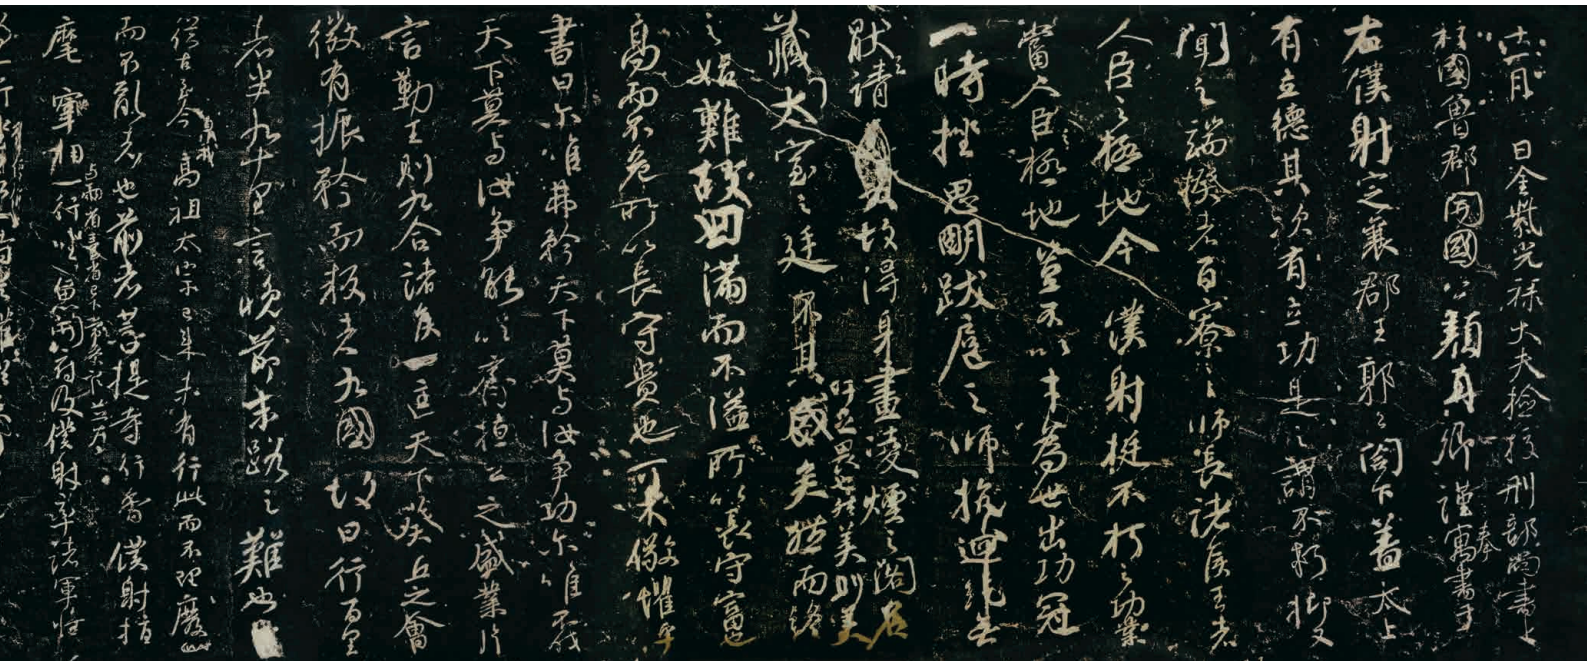 十一月 日金紫光祿大夫檢校刑部尚書上
柱國魯郡開國公顏真卿謹奉書于
右僕射定襄郡王郭公閣下蓋太上
有立德其次有立功是之謂不朽抑又
聞之端揆者百寮之師長諸侯王者
人臣之極地今僕射挺不朽之功業
當人臣極地豈不以才為世出功冠
一時挫思明跋扈之師抗迴紇無
猒之請 故得身畫淩煙之閣名
藏太室之廷吁足畏也然美則美矣 而終
之始難故曰滿而不溢所以長守富也
高而不危所以長守貴也可不儆懼乎
書曰尔唯弗矜天下莫与汝爭功尔唯不伐
天下莫与汝爭能以齊桓公之盛業片
言勤王則九合諸侯一匡天下葵丘之會
微有振矜而叛者九國故曰行百里
者半九十里言晚節末路之難也
從古至今暨我高祖太宗已來未有行此而不理廢
而不亂者也前者菩提寺行香僕射指
麾宰相与兩省臺省已下常參官並為一行坐魚開府及僕射率諸軍將